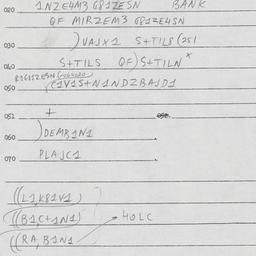 020 1NZE4M3 G81ZESN BANK
QF MIRZEM3 G81ZE4SN
030 )VAJX1 S+TIL8(251
040 S+TILS QF)S+TILN*
050 (1V1S+N1NDZBAJD1
051 +
060 )DEMR1N1
070 PLAJC1
((L1,K81V1)
((B1C+1N1) HOLC
((RA,B1N1